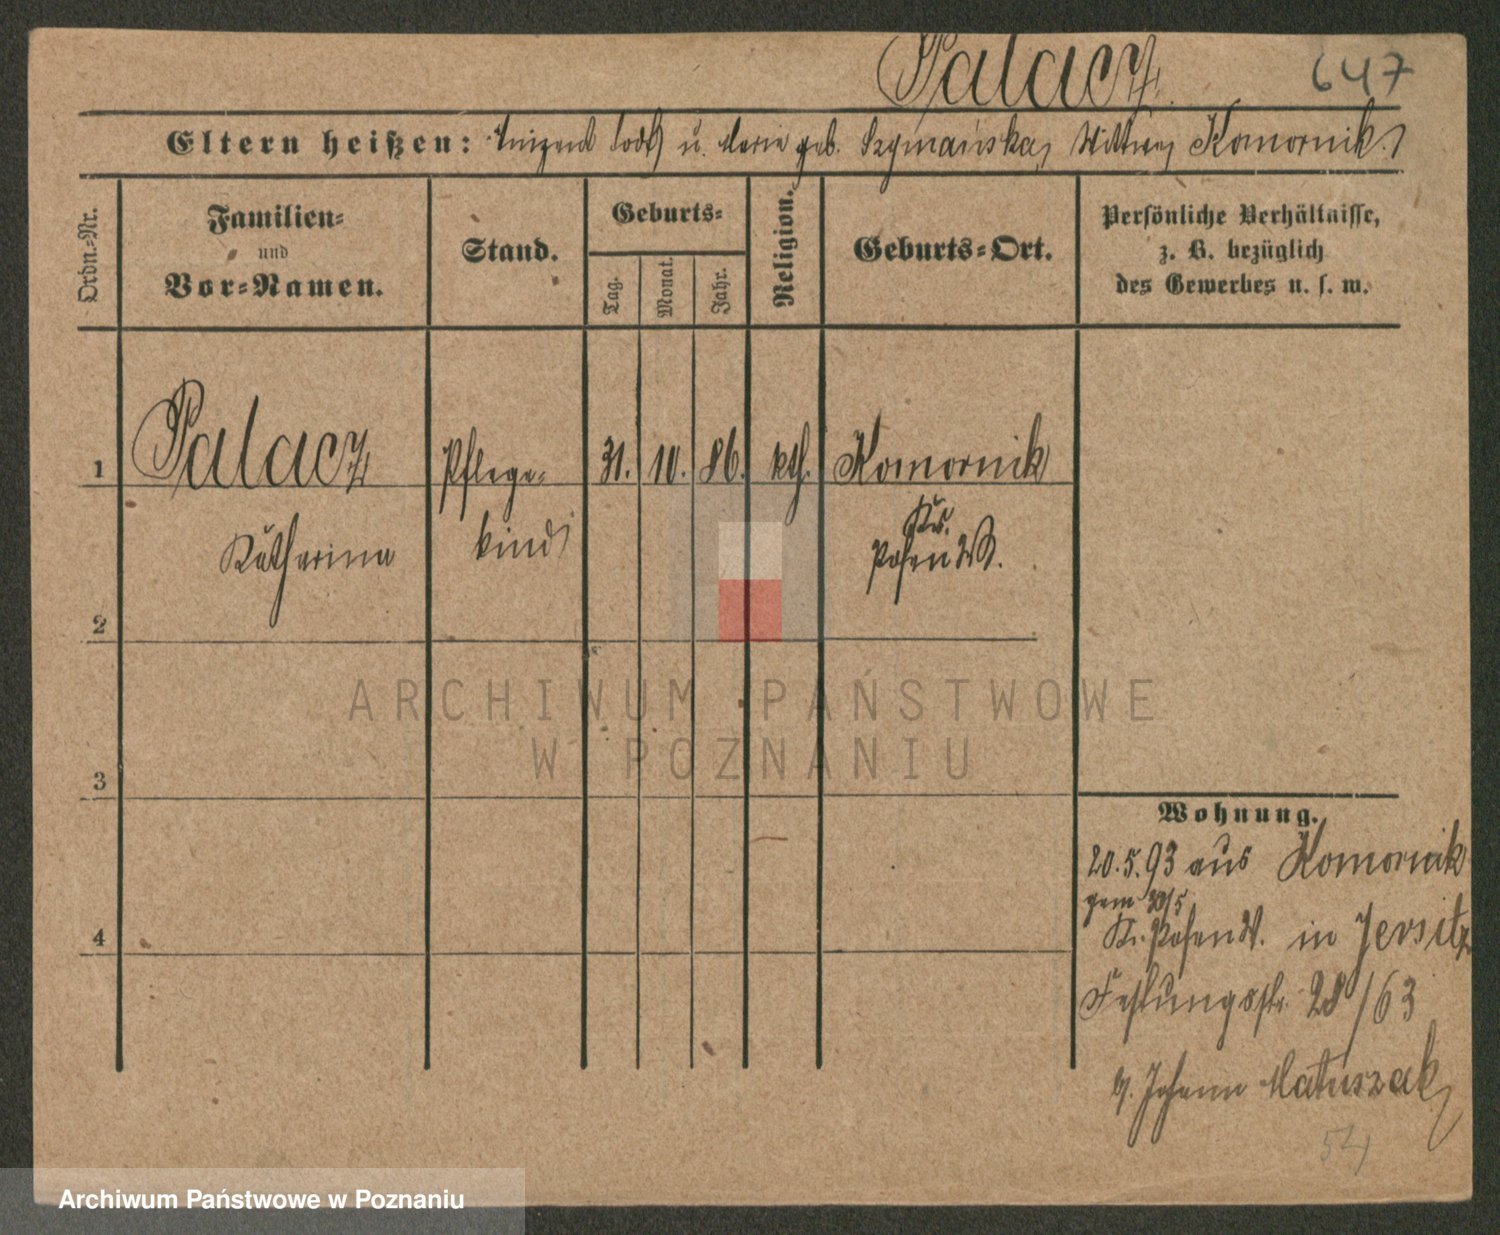 Palacz.
647
Eltern heißen: Vinzent todt u. Marie geb. Szymańska, Wittwe, Komornik.
Ordn.-Nr.
Familien-
und
Vor-Namen.
Stand.
Geburts-
Tag.
Monat.
Jahr.
Religion.
Geburts-Ort.
Persönliche Verhältnisse,
z. B. bezüglich
des Gewerbes u. s. w.
1 Palacz Pflege- 31. 10. 86. kth. Komornik
Katharina kind Krs.
Posen W.
2
3
4
Wohnung.
20.5.93 aus Komornik
gem 30/5
Kr. Posen W. in Jersitz
Festungsstr. 28/63
b. Johann Matuszak
54
ARCHIWUM PAŃSTWOWE
W POZNANIU
Archiwum Państwowe w Poznaniu